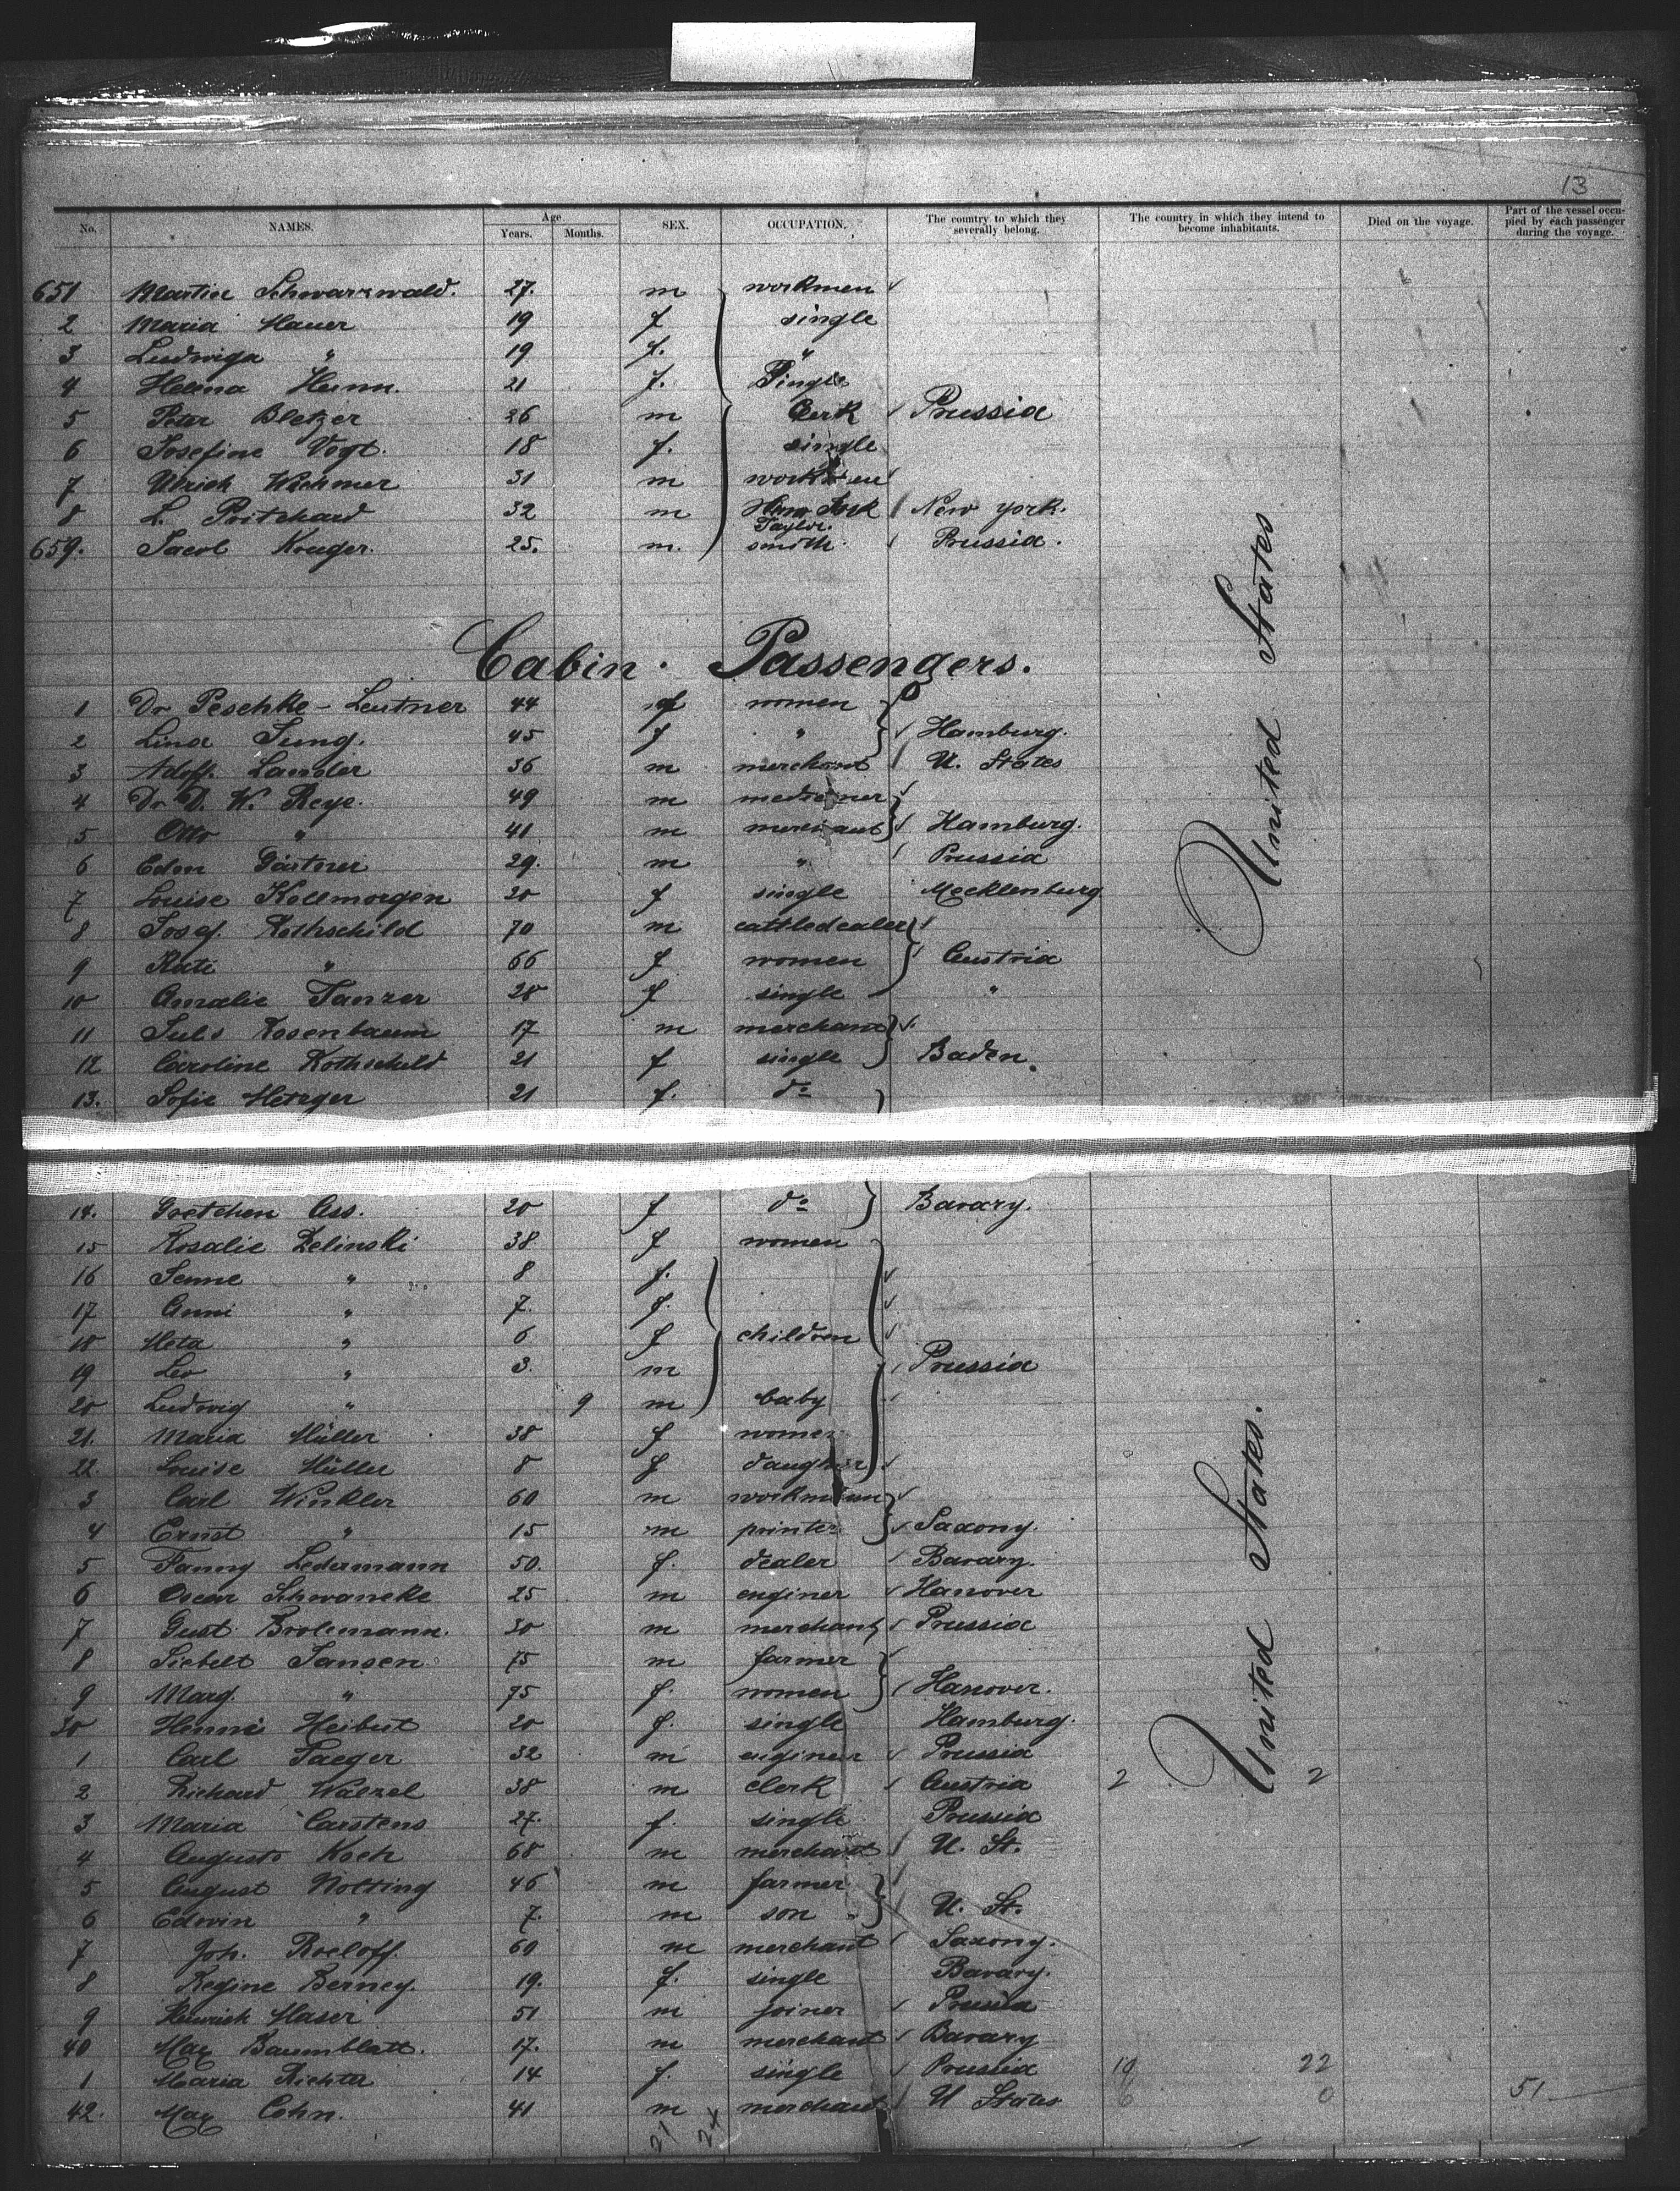 13
No. NAMES. Age Years. Months. SEX. OCCUPATION. The country to which they severally belong. The country in which they intend to become inhabitants. Died on the voyage. Part of the vessel occupied by each passenger during the voyage.
651 Martin Schwarzwald. 27. m workmen
2 Maria Hauer 19 f single
3 Ludwiga " 19 f. "
4 Helena Hunn. 21 f. Single
5 Peter Bletzer 26 m Clerk Prussia
6 Josefine Vogt. 18 f. single
7 Ulrich Wichmer 31 m workmen
8 L. Pritchard 32 m Taylor. New York.
659. Jacob Kruger. 25. m. smith Prussia.
United States
Cabin Passengers.
1 Dr Peschke-Leutner 44 f women
2 Lina Jung. 45 f " Hamburg.
3 Adolf. Lander 36 m merchant U. States
4 Dr D. W. Reye. 49 m mediciner
5 Otto " 41 m merchant Hamburg.
6 Edm Gärtner 29. m " Prussia
7 Louise Kollmorgen 20 f single Mecklenburg
8 Josef. Rothschild 70 m cattledealer
9 Kati " 66 f women Austria
10 Amalie Tanzer 28 f single "
11 Juls Rosenbaum 17 m merchant
12 Caroline Rothschild 21 f single Baden.
13. Sofie Metzger 21 f. do
14. Gretchen Ass. 20 f do Bavary.
15 Rosalie Zelinski 38 f women
16 Jenne " 8 f.
17 Anni " 7. f.
18 Meta " 6 f children
19 Leo " 3. m Prussia
20 Ludwig " 9 m baby
21. Maria Müller 38 f women
22. Louise Müller 8 f daughter
3 Carl Winkler 60 m workman
4 Ernst " 15 m printer Saxony.
5 Fanny Ledermann 50. f. dealer Bavary.
6 Oscar Schwaneke 25 m enginer Hanover
7 Gust. Brolemann. 30 m merchant Prussia
8 Siebelt Jansen 75 m farmer
9 Marg. " 75 f. women Hanover.
30 Henni Heibut 20 f. single Hamburg.
1 Carl Jaeger 32 m enginer Prussia
2 Richard Walzel 38 m clerk Austria 2 2
3 Maria Carstens 27. f. single Prussia
4 Augusts Koch 68 m merchant U. St.
5 August Nolting 46 m farmer
6 Edwin " 7. m son U. St.
7 Joh. Roeloff. 60 m merchant Saxony.
8 Regine Berney. 19. f. single Bavary.
9 Heinrich Haser 51 m joiner Prussia
40 Max Baumblatt. 17. m merchant Bavary
1 Maria Richter 14 f. single Prussia 19 22
42. Max Cohn. 41 m merchant U States 6 0 51
United States.
21 24